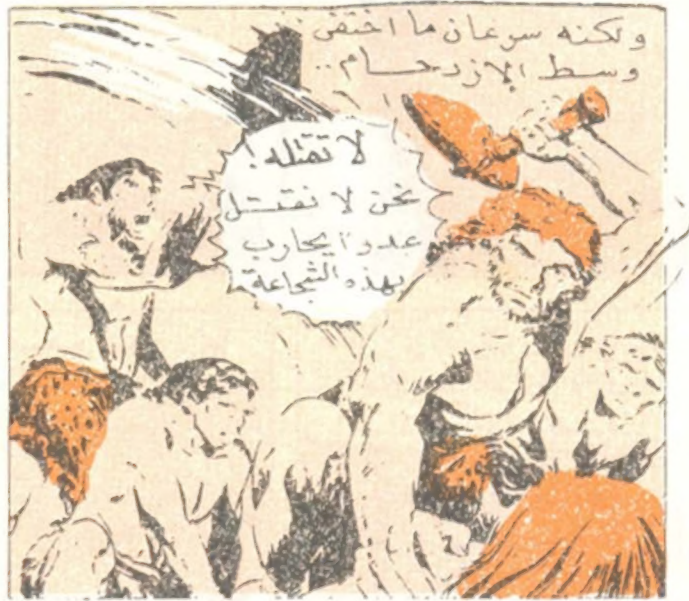 ولكنه سرعان ما اختفى
وسط الازدحام..
لا تقتله!
نحن لا نقتل
عدوا يحارب
بهذه الشجاعة